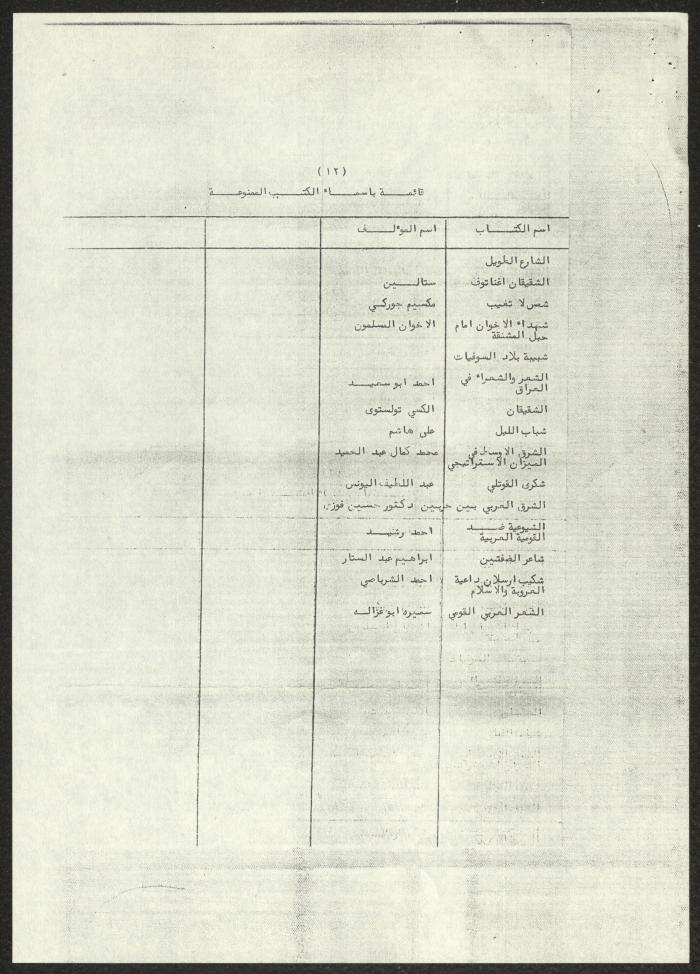 (١٢)
قائمـــة باسمـــاء الكتــــب الممنوعـــــة
اسم الكتـــــاب اسم المؤلــــف
الشارع الطويل
الشقيقان اغناتوف ستالــــــين
شمس لا تغيب مكسيم جوركــي
شهداء الاخوان امام الاخوان المسلمون
حبل المشنقة
شبيبة بلاد السوفيات
الشعر والشعراء في احمد ابو سعيــــد
العراق
الشقيقان الكسي تولستوى
شباب الليل على هاشم
الشرق الاوسط في محمد كمال عبد الحميد
الميزان الاستراتيجي
شكرى القوتلي عبد اللطيف اليونس
الشرق العربي بين حربين دكتور حسين فوزي
الشيوعية ضــــد احمد رشيـــد
القومية العربية
شاعر الضفتين ابراهيم عبد الستار
شكيب ارسلان داعية احمد الشرباصي
العروبة والاسلام
الشعر العربي القومي سميره ابو غزالــه